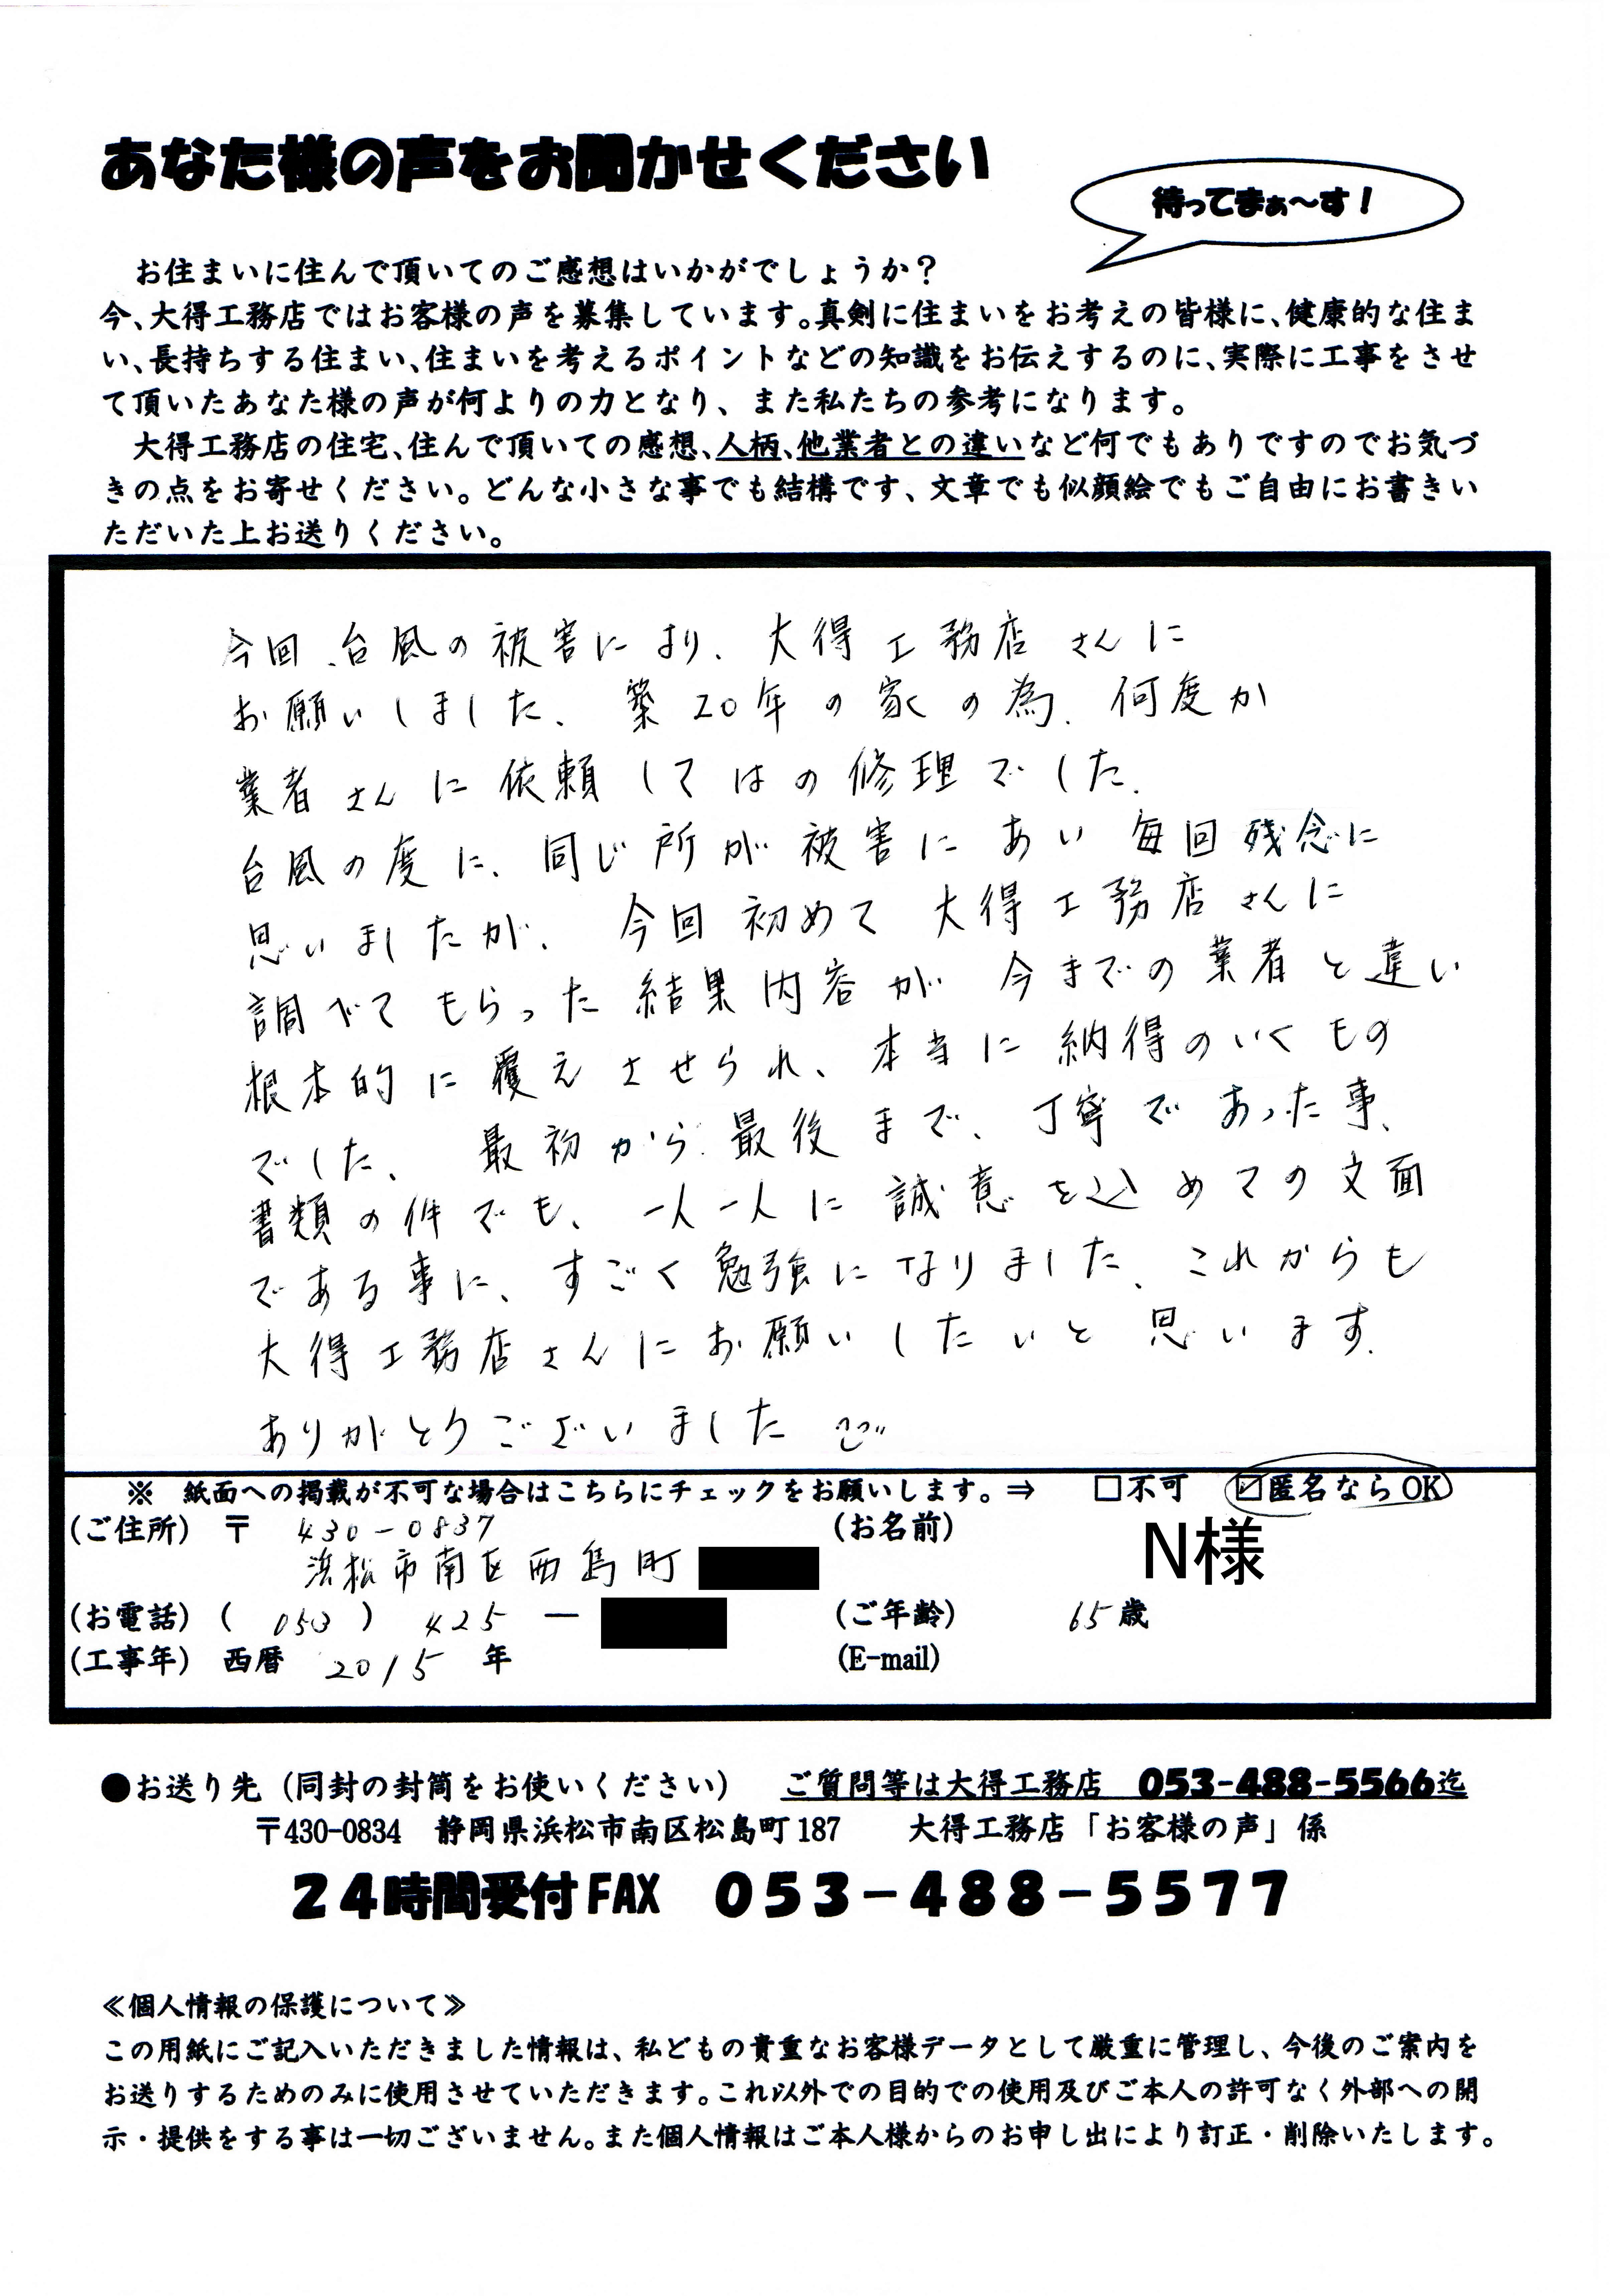 あなた様の声をお聞かせください
待ってまぁ～す！
お住まいに住んで頂いてのご感想はいかがでしょうか？
今、大得工務店ではお客様の声を募集しています。真剣に住まいをお考えの皆様に、健康的な住ま
い、長持ちする住まい、住まいを考えるポイントなどの知識をお伝えするのに、実際に工事をさせ
て頂いたあなた様の声が何よりの力となり、また私たちの参考になります。
大得工務店の住宅、住んで頂いての感想、人柄、他業者との違いなど何でもありですのでお気づ
きの点をお寄せください。どんな小さな事でも結構です、文章でも似顔絵でもご自由にお書きい
ただいた上お送りください。
今回、台風の被害により、大得工務店さんに
お願いしました、築20年の家の為、何度か
業者さんに依頼してはの修理でした。
台風の度に、同じ所が被害にあい毎回残念に
思いましたが、今回初めて大得工務店さんに
調べてもらった結果内容が今までの業者と違い
根本的に覆えさせられ、本当に納得のいくもの
でした、最初から最後まで、丁寧であった事、
書類の件でも、一人一人に誠意を込めての文面
である事に、すごく勉強になりました。これからも
大得工務店さんにお願いしたいと思います。
ありがとうございました
※ 紙面への掲載が不可な場合はこちらにチェックをお願いします。⇒ □不可 ☑匿名ならOK
(ご住所) 〒 430-0837 (お名前) N様
浜松市南区西島町
(お電話) ( 053 ) 425 ー (ご年齢) 65歳
(工事年) 西暦 2015 年 (E-mail)
●お送り先（同封の封筒をお使いください） ご質問等は大得工務店 053-488-5566迄
〒430-0834 静岡県浜松市南区松島町187 大得工務店「お客様の声」係
24時間受付FAX 053-488-5577
≪個人情報の保護について≫
この用紙にご記入いただきました情報は、私どもの貴重なお客様データとして厳重に管理し、今後のご案内を
お送りするためのみに使用させていただきます。これ以外での目的での使用及びご本人の許可なく外部への開
示・提供をする事は一切ございません。また個人情報はご本人様からのお申し出により訂正・削除いたします。